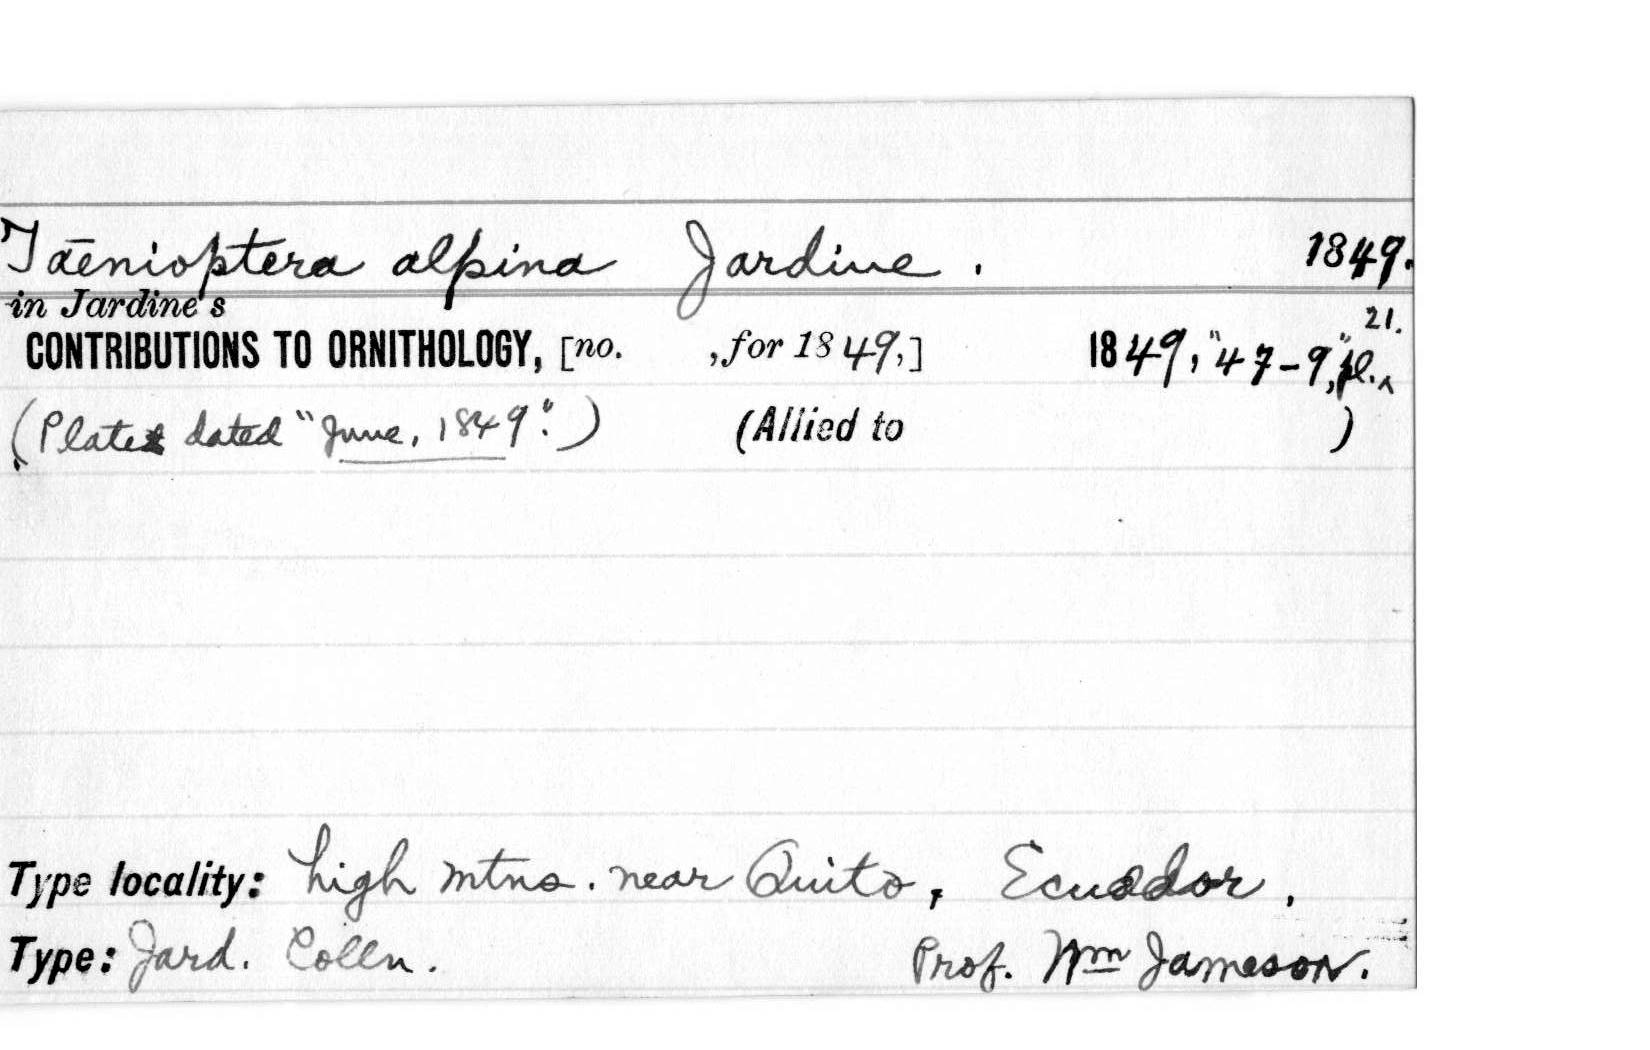 Taēnioptera alpina Jardine. 1849.
in Jardine's
CONTRIBUTIONS TO ORNITHOLOGY, [no. , for 1849,] 1849, "47-9," pl. ^ 21.
(Plate dated "June, 1849".) (Allied to )
Type locality: high mtns. near Quito, Ecuador,
Type: Jard. Colln. Prof. Wm Jameson.